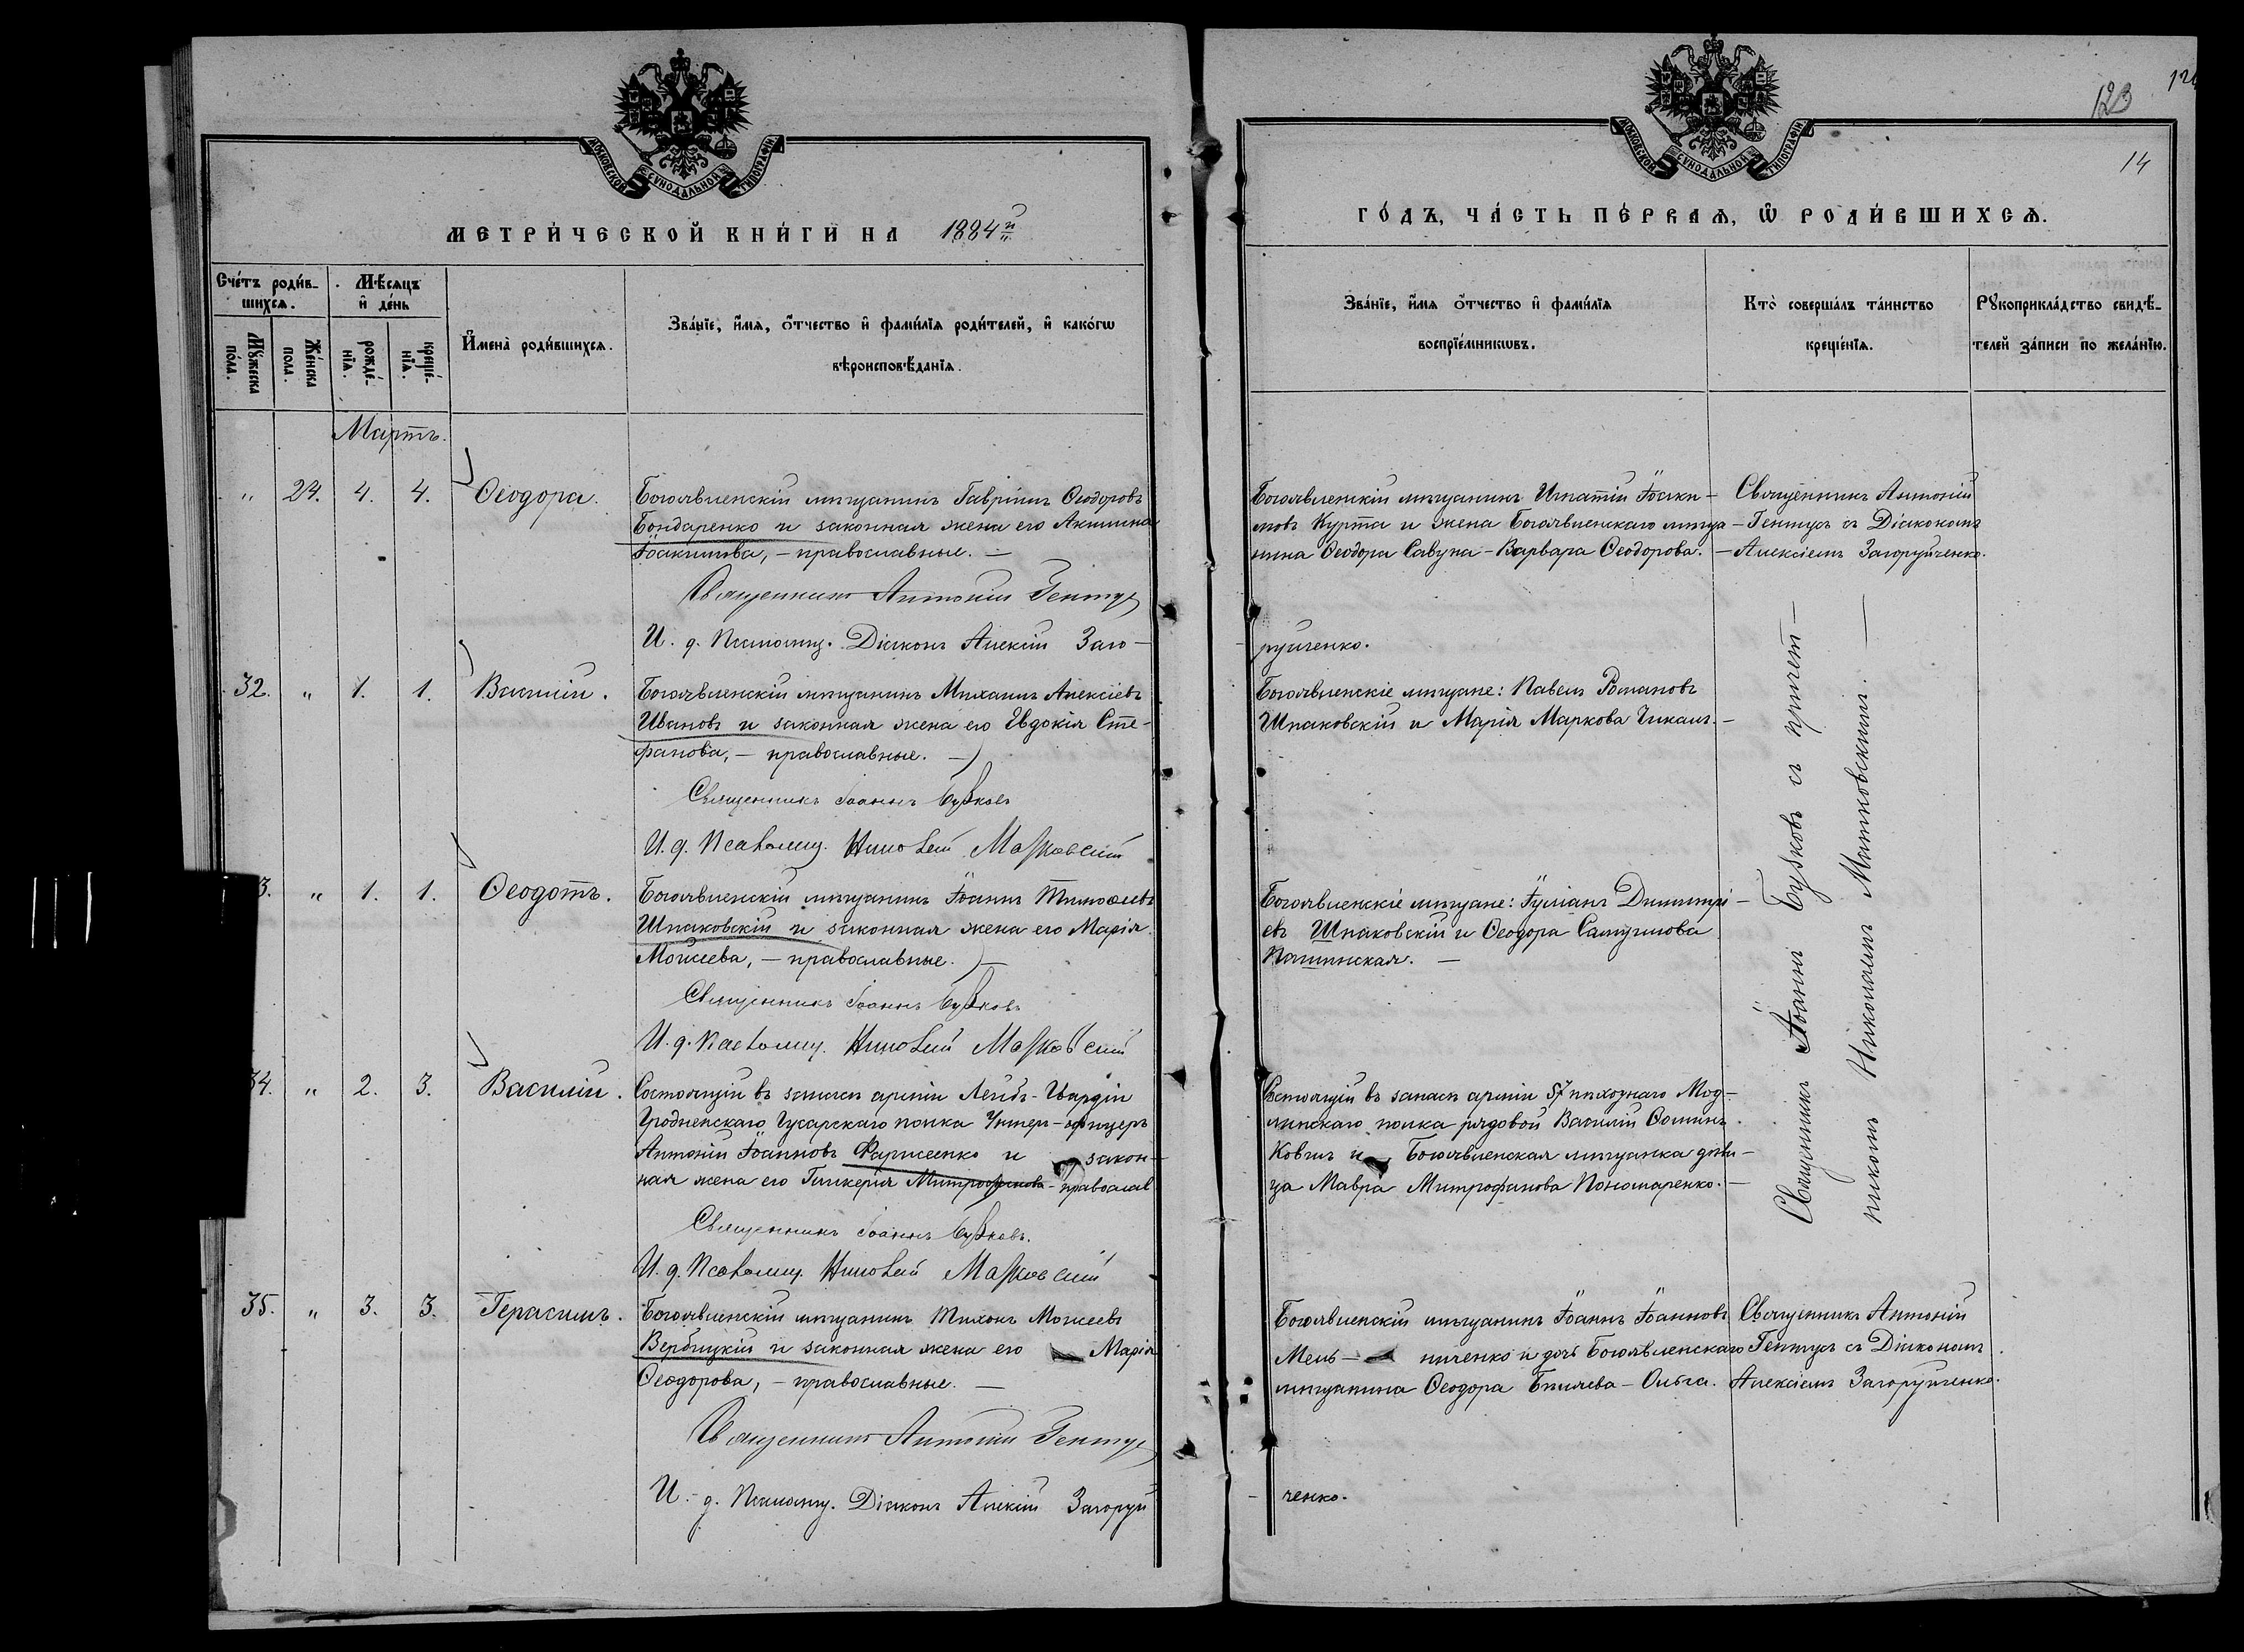 МОСКОВСКОЙ СУНОДАЛЬНОЙ ТИПОГРАФІИ.
МЕТРИ́ЧЕСКОЙ КНИ́ГИ НА 1884й
Сче́тъ роди́в-
шихся.
Мѣ́сяцъ
и҆ де́нь
Мꙋ́жеска
по́ла.
Же́нска
пола.
рожде́-
нїѧ.
креще́-
нїѧ.
И҆мена̀ роди́вшихсѧ.
Зва́нїе, и҆́мѧ, ѻ҆́тчество и҆ фами́лїѧ роди́телей, и҆ како́гѡ
вѣроисповѣ́данїѧ.
Мартъ.
" 24. 4. 4. Ѳеодора.
Богоявленскій мѣщанинъ Гавріилъ Ѳеодоровъ
Бондаренко и законная жена его Акилина
Іоакимова, — православные. —
Священникъ Антоній Гентуе
И. д. Псаломщ. Діаконъ Алексій Заго-
32. " 1. 1. Василій.
Богоявленскій мѣщанинъ Михаилъ Алексіевъ
Ивановъ и законная жена его Евдокія Сте-
фанова, — православные. —
Священникъ Іоаннъ Бузковъ
И. д. Псаломщ. Николай Матковскій
3. " 1. 1. Ѳеодотъ.
Богоявленскій мѣщанинъ Іоаннъ Тимоѳеевъ
Шпаковскій и законная жена его Марія
Моисеева, — православные. —
Священникъ Іоаннъ Бузковъ
И. д. Псаломщ. Николай Матковскій
34. " 2. 3. Василій.
Состоящій въ запасѣ арміи Лейбъ-Гвардіи
Гродненскаго Гусарскаго полка Унтеръ-офицеръ
Антоній Іоанновъ Фарисеенко и закон-
ная жена его Гликерія Митрофанова - православ
Священникъ Іоаннъ Бузковъ.
И. д. Псаломщ. Николай Матковскій
35. " 3. 3. Герасимъ.
Богоявленскій мѣщанинъ Тихонъ Моисеевъ
Вербицкій и законная жена его Марія
Ѳеодорова, — православные. —
Священникъ Антоній Гентуе
И. д. Псаломщ. Діаконъ Алексій Загоруй
123
14
МОСКОВСКОЙ СУНОДАЛЬНОЙ ТИПОГРАФІИ.
ГО́ДЪ, ЧА́СТЬ ПЕ́РВАѦ, Ѡ҆ РОДИ́ВШИХСѦ.
Зва́нїе, и҆́мѧ ѻ҆́тчество и҆ фами́лїѧ
воспрїе́мникѡвъ.
Кто̀ соверша́лъ та́инство
креще́нїѧ.
Рꙋкоприкла́дство свидѣ́-
телей за́писи по жела́нїю.
Богоявленскій мѣщанинъ Игнатій Іоаки-
мовъ Курта и жена Богоявленскаго мѣща-
нина Ѳеодора Савуна - Варвара Ѳеодорова.
Священникъ Антоній
Гентуе съ Діакономъ
Алексіемъ Загоруйченко.
руйченко.
Богоявленскіе мѣщане: Павелъ Романовъ
Шпаковскій и Марія Маркова Чикалъ. -
Богоявленскіе мѣщане: Іуліанъ Димитрі-
евъ Шпаковскій и Ѳеодора Самуилова
Пашинская. —
Состоящій въ запасѣ арміи 57 пѣхотнаго Мод-
линскаго полка рядовой Василій Ѳоминъ
Ковгиъ и Богоявленская мѣщанка дѣви-
ца Мавра Митрофанова Пономаренко. -
Священникъ Іоаннъ Бузковъ съ причет-
никомъ Николаемъ Матковскимъ. —
Богоявленскій мѣщанинъ Іоаннъ Іоанновъ
Мель- ниченко и дочь Богоявленскаго
мѣщанина Ѳеодора Бѣляева - Ольга.
Священникъ Антоній
Гентуе съ Діакономъ
Алексіемъ Загоруйченко.
ченко.